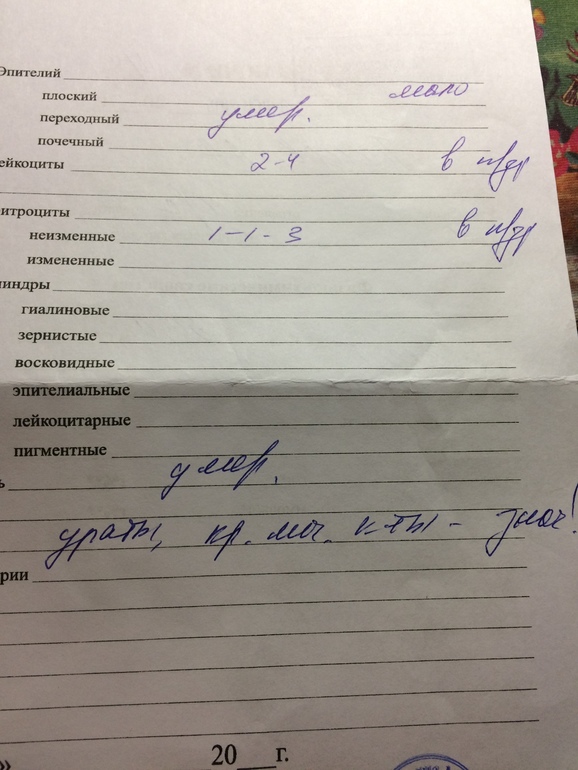 Эпителий
плоский мало
переходный умер.
почечный
ейкоциты 2-4 в п/зр
итроциты
неизменные 1-1-3 в п/зр
измененные
индры
гиалиновые
зернистые
восковидные
эпителиальные
лейкоцитарные
пигментные
ь умер.
ураты, кр. мч. к-ты - знач!
рии
» 20 г.